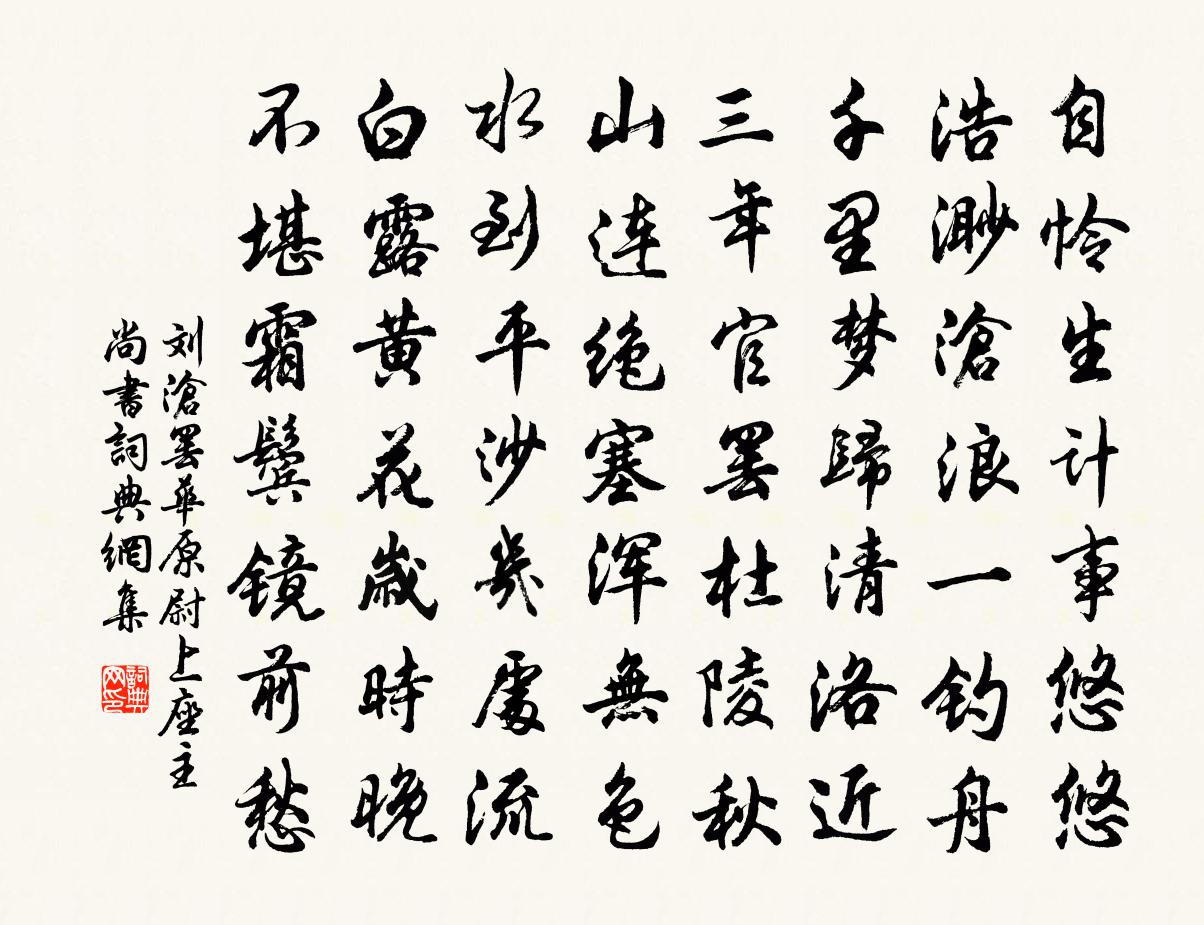 自怜生计事悠悠
浩渺滄浪一钓舟
千里梦歸清洛近
三年官罢杜陵秋
山连绝塞浑無色
水到平沙幾處流
白露黄花歲時晚
不堪霜鬓镜前愁
刘滄罢華原尉上座主
尚書詞典網集
詞典网印